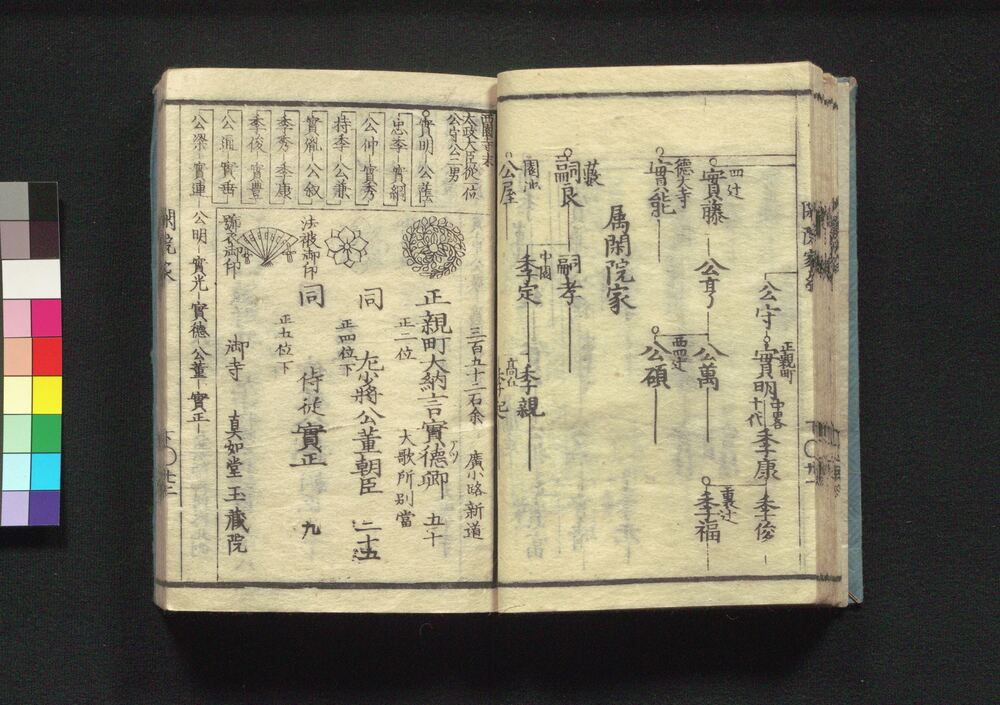 公守
正親町
實明
中畧
十代
季康
季俊
四辻
實藤
公亨
公萬
裏辻
季福
西四辻
公碩
德大寺
實能
属閑院家
藪
嗣良
嗣孝
中園
季定
季親
高丘
季起
園池
公屋
西園寺末
太政大臣從一位
公守公二男
實明
公蔭
忠季
實綱
公仲
實秀
持季
公兼
實胤
公叙
季秀
季康
季俊
實豊
公通
實垂
公梁
實連
公明
實光
實德
公董
實正
三百五十二石余
廣小路新道
正親町大納言實德卿
アツ
五十
正二位
大歌所別當
同
左少將公董朝臣
二十五
正四位下
同
侍從實正
九
正五位下
法被御印
御寺
真如堂玉蔵院
閑院家